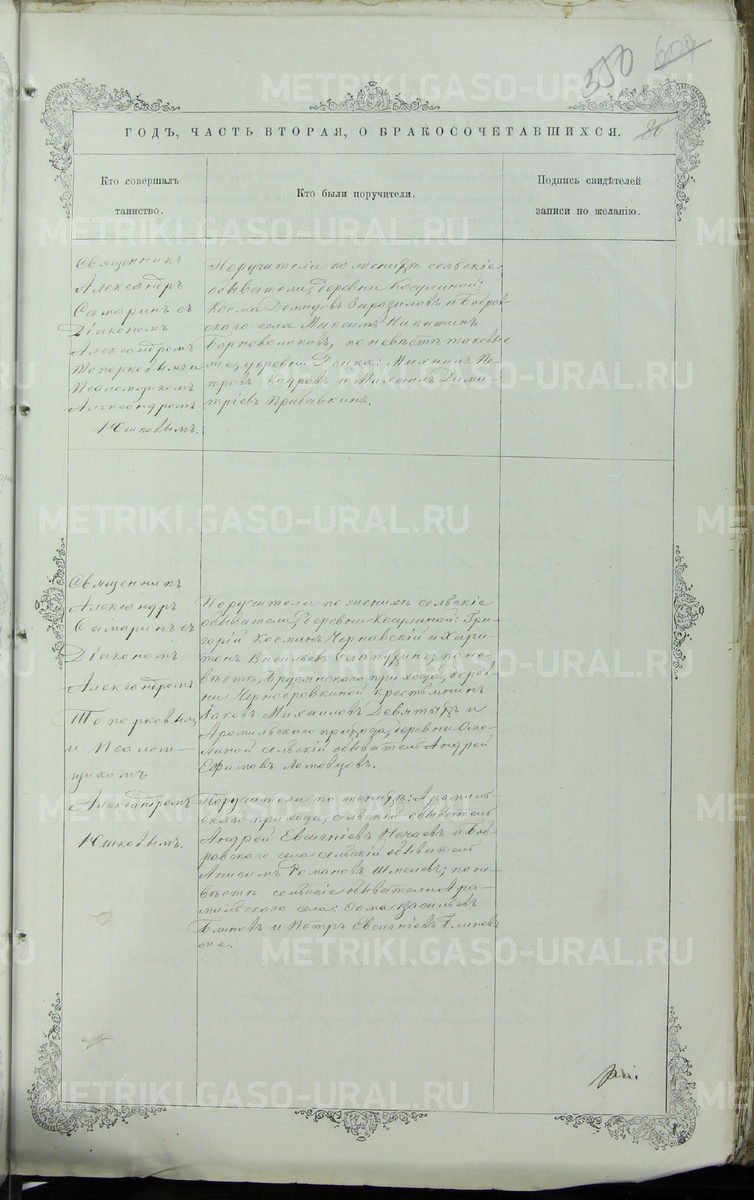 350 609
ГОДЪ, ЧАСТЬ ВТОРАЯ, О БРАКОСОЧЕТАВШИХСЯ.
86
Кто совершалъ
таинство.
Кто были поручители.
Подпись свидѣтелей
записи по желанію.
Священникъ
Александръ
Самаринъ съ
Діакономъ
Александромъ
Топорковымъ и
Псаломщикомъ
Александромъ
Юшковымъ.
Поручатели по женихѣ сельскіе
обыватели, деревни Косулиной:
Косма Демидовъ и Бобров-
скаго села Максимъ Никитинъ
Черноволоковъ, по невѣстѣ таковые
же, деревни Михаилъ Пе-
тровъ и Михаилъ Дими-
тріевъ Прибавкинъ.
Священникъ
Александръ
Самаринъ съ
Діакономъ
Александромъ
Топорковымъ
и Псалом-
щикомъ
Александромъ
Юшковымъ.
Поручатели по женихѣ сельскіе
обыватели, деревни Косулиной: Гри-
горій Косминъ Черновскій и Хари-
тонъ Васильевъ по не-
вѣстѣ, Брусянскаго прихода, дерев-
ни Чернобровкиной крестьянинъ
Іаковъ Михаиловъ Девятыхъ и
Арамильскаго прихода, деревни
сельскій обыватель Андрей
Ефимовъ Ломовцевъ.
Поручатели по женихѣ: Арамиль-
скаго прихода, сельскій обыватель
Андрей Евсигніевъ Нечаевъ и Боб-
ровскаго села сельскій обыватель
Анисимъ Романовъ Шмелевъ; по не-
вѣстѣ сельскіе обыватели Ара-
мильскаго села: Ѳома Васильевъ
Блиновъ и Петръ Евсигніевъ Блиновъ
же.
METRIKI.GASO-URAL.RU